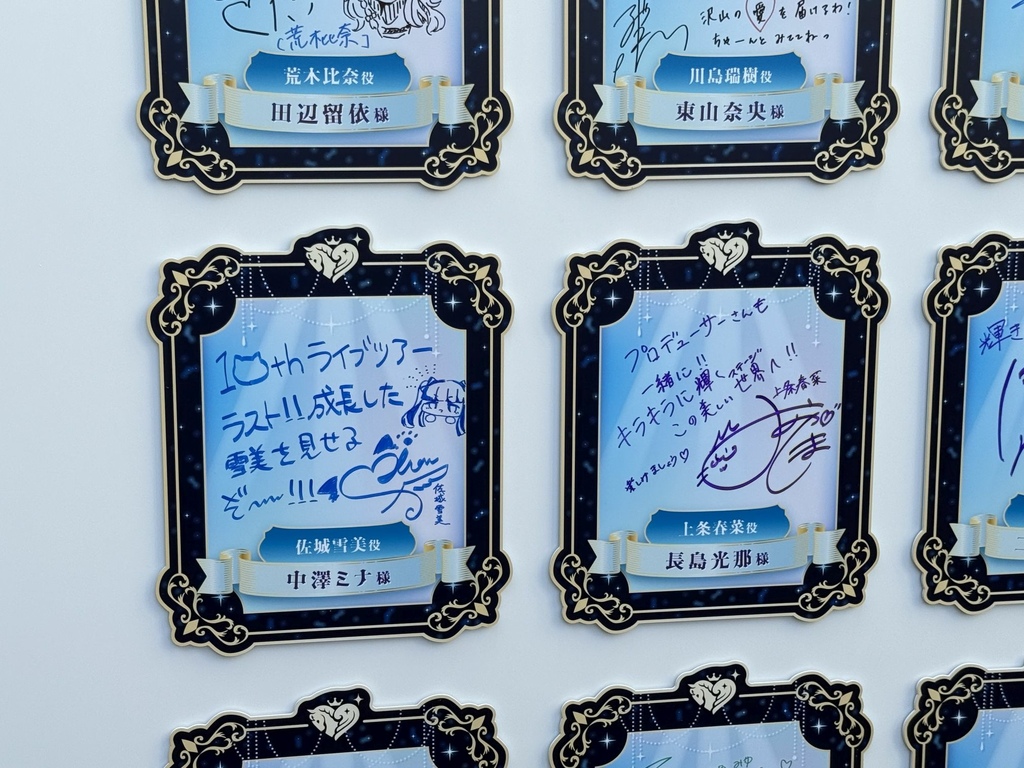 [荒木比奈]
荒木比奈役
田辺留依様
沢山の愛を届けるわ!
ちゃーんとみててねっ
川島瑞樹役
東山奈央様
10thライブツアー
ラスト!!成長した
雪美を見せる
ぞ〜!!!
佐城雪美
佐城雪美役
中澤ミナ様
プロデューサーさんも
一緒に!!
キラキラに輝く
この美しい世界へ!!
ステージ
上条春菜
楽しみましょう♡
上条春菜役
長島光那様
輝き